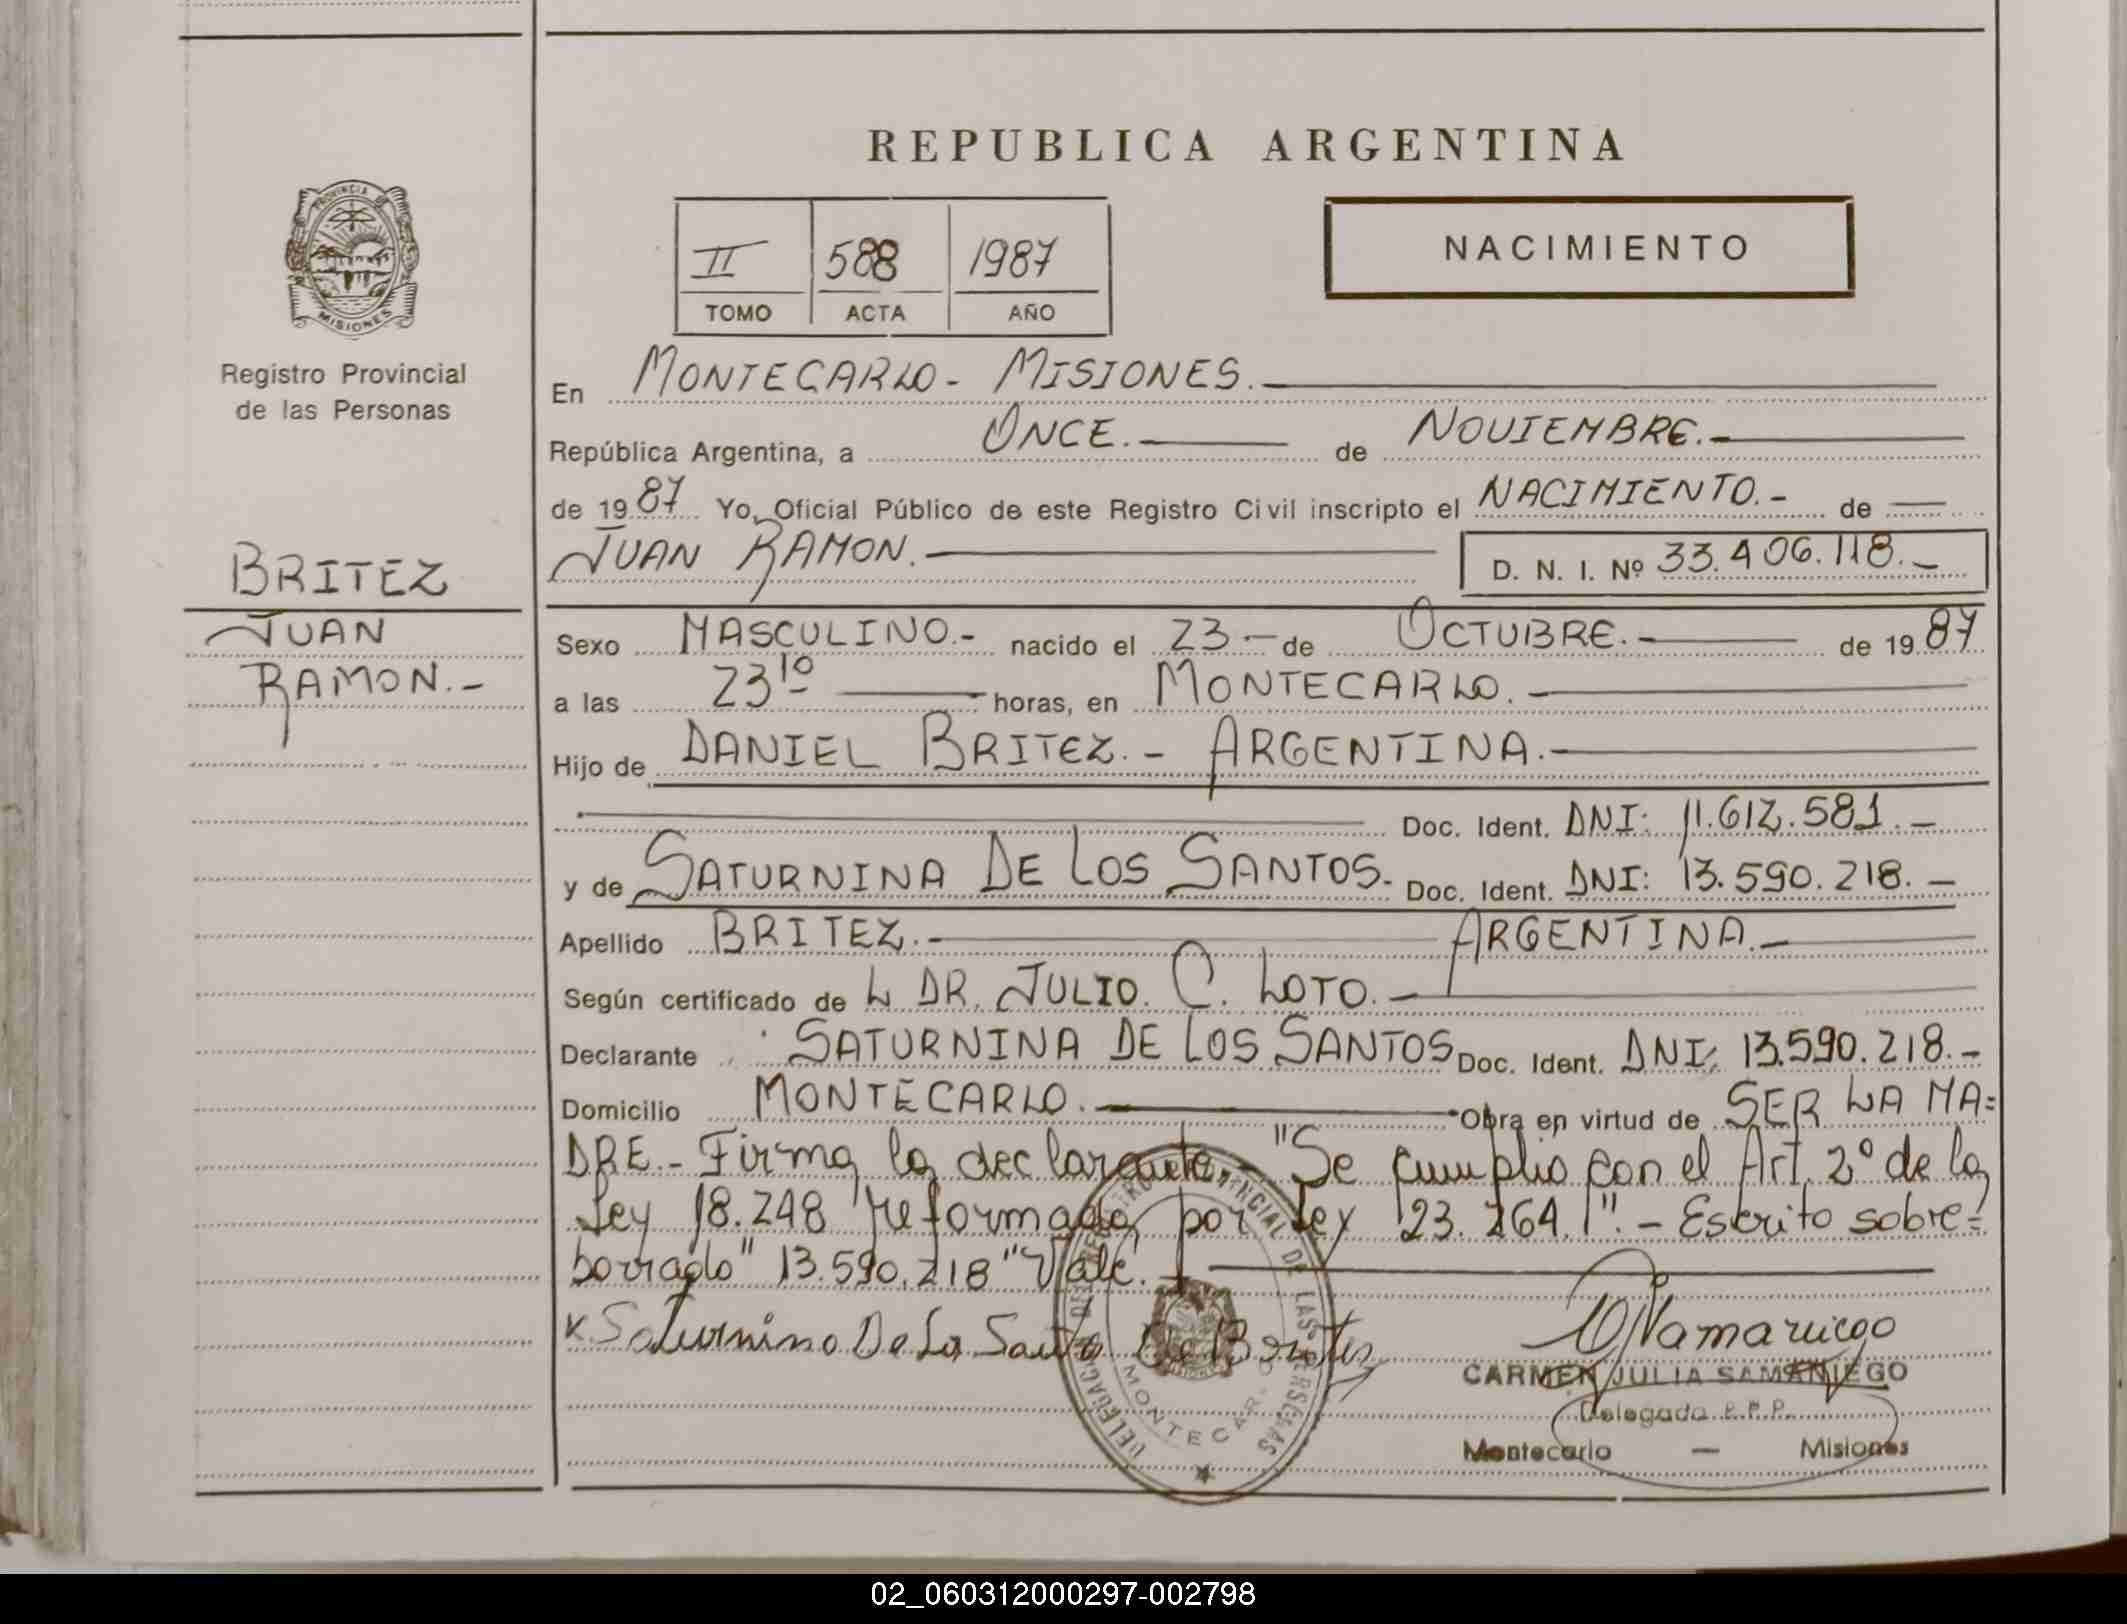 REPUBLICA ARGENTINA
PROVINCIA DE
MISIONES
Registro Provincial
de las Personas
BRITEZ
JUAN
RAMON.-
II 588 1987
TOMO ACTA AÑO
NACIMIENTO
En MONTECARLO - MISIONES.
República Argentina, a ONCE. de NOVIEMBRE.-
de 1987 Yo, Oficial Público de este Registro Civil inscripto el NACIMIENTO.- de
JUAN RAMON. D. N. I. Nº 33.406.118.-
Sexo MASCULINO.- nacido el 23.- de OCTUBRE.- de 1987
a las 23 10 horas, en MONTECARLO.-
Hijo de DANIEL BRITEZ.- ARGENTINA.-
Doc. Ident. DNI: 11.612.581.-
y de SATURNINA DE LOS SANTOS.- Doc. Ident. DNI: 13.590.218.-
Apellido BRITEZ.- ARGENTINA.-
Según certificado de L DR. JULIO. C. LOTO.-
Declarante SATURNINA DE LOS SANTOS Doc. Ident. DNI: 13.590.218.-
Domicilio MONTECARLO.- Obra en virtud de SER LA MA=
DRE.- Firma la declarante.- "Se cumplio con el Art. 2º de la
Ley 18.248 reformada por Ley 23.264."- Escrito sobre=
borrado" 13.590.218 "Vale.
x Saturnino De Lo Santo De Britez
DELEGACION DEL REGISTRO PROVINCIAL DE LAS PERSONAS
MONTECARLO
CARMEN JULIA SAMANIEGO
Delegada R.P.P.
Montecarlo - Misiones
02_060312000297-002798